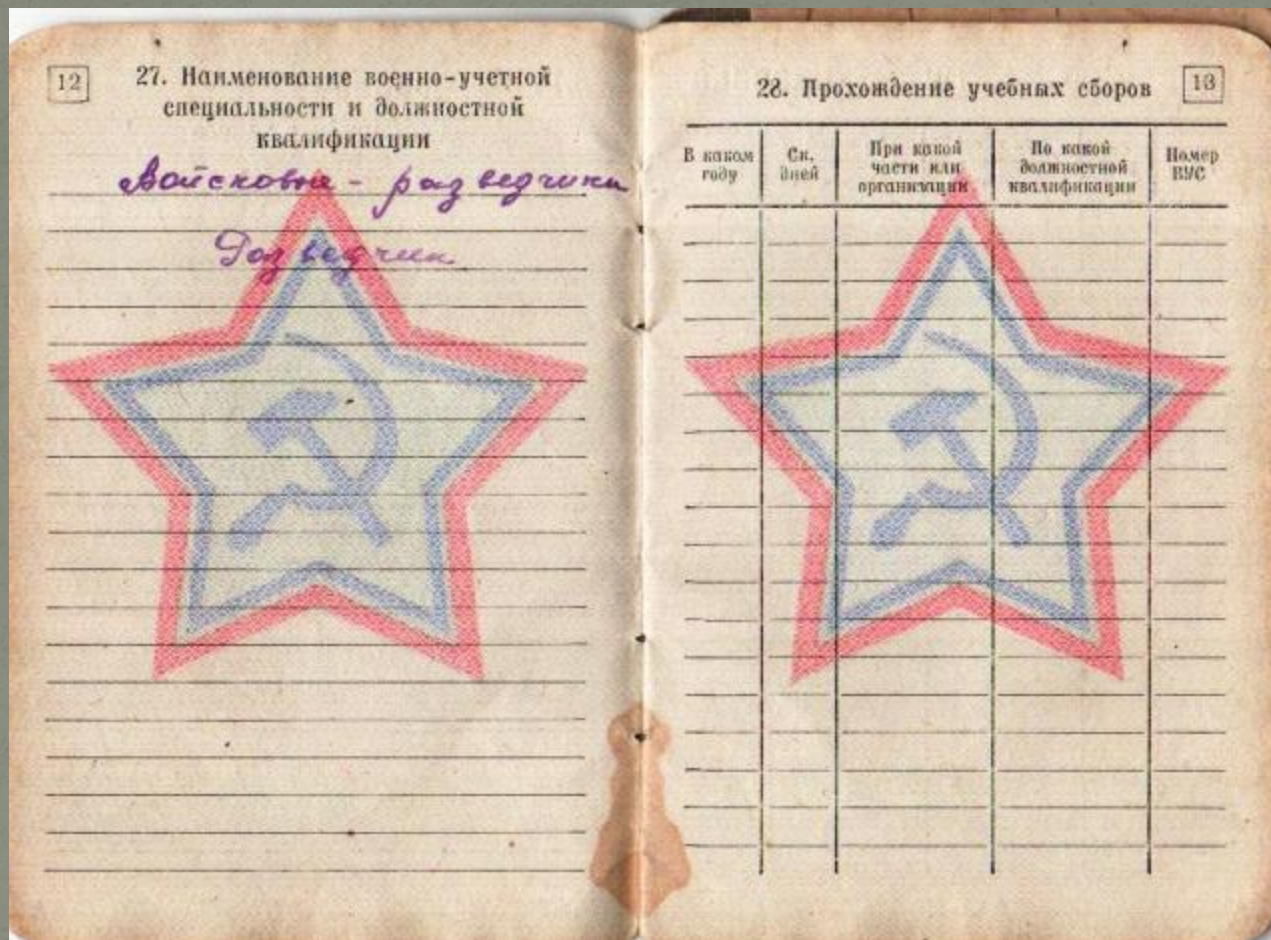 12
27. Наименование военно-учетной
специальности и должностной
квалификации
Войсковые - разведчики
Разведчик
28. Прохождение учебных сборов
13
В каком
году
Ск.
дней
При какой
части или
организации
По какой
должностной
квалификации
Номер
ВУС